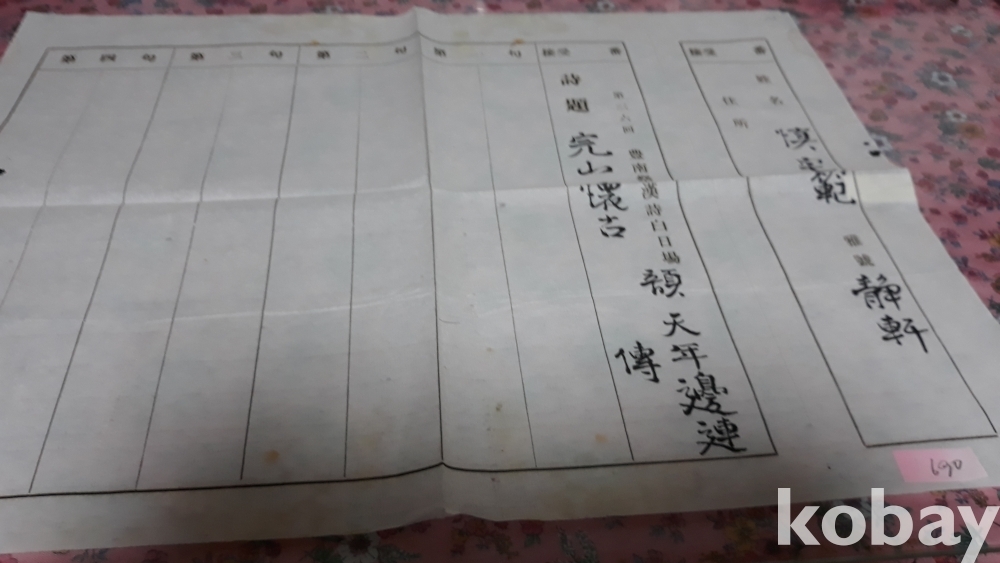 接受 番
姓名 慎 範
住所
雅號 靜軒
接受 番
回 豊南 漢詩白日場
韻 天年邊連傳
詩題 完山懷古
第一句
第二句
第三句
第四句
690
kobay